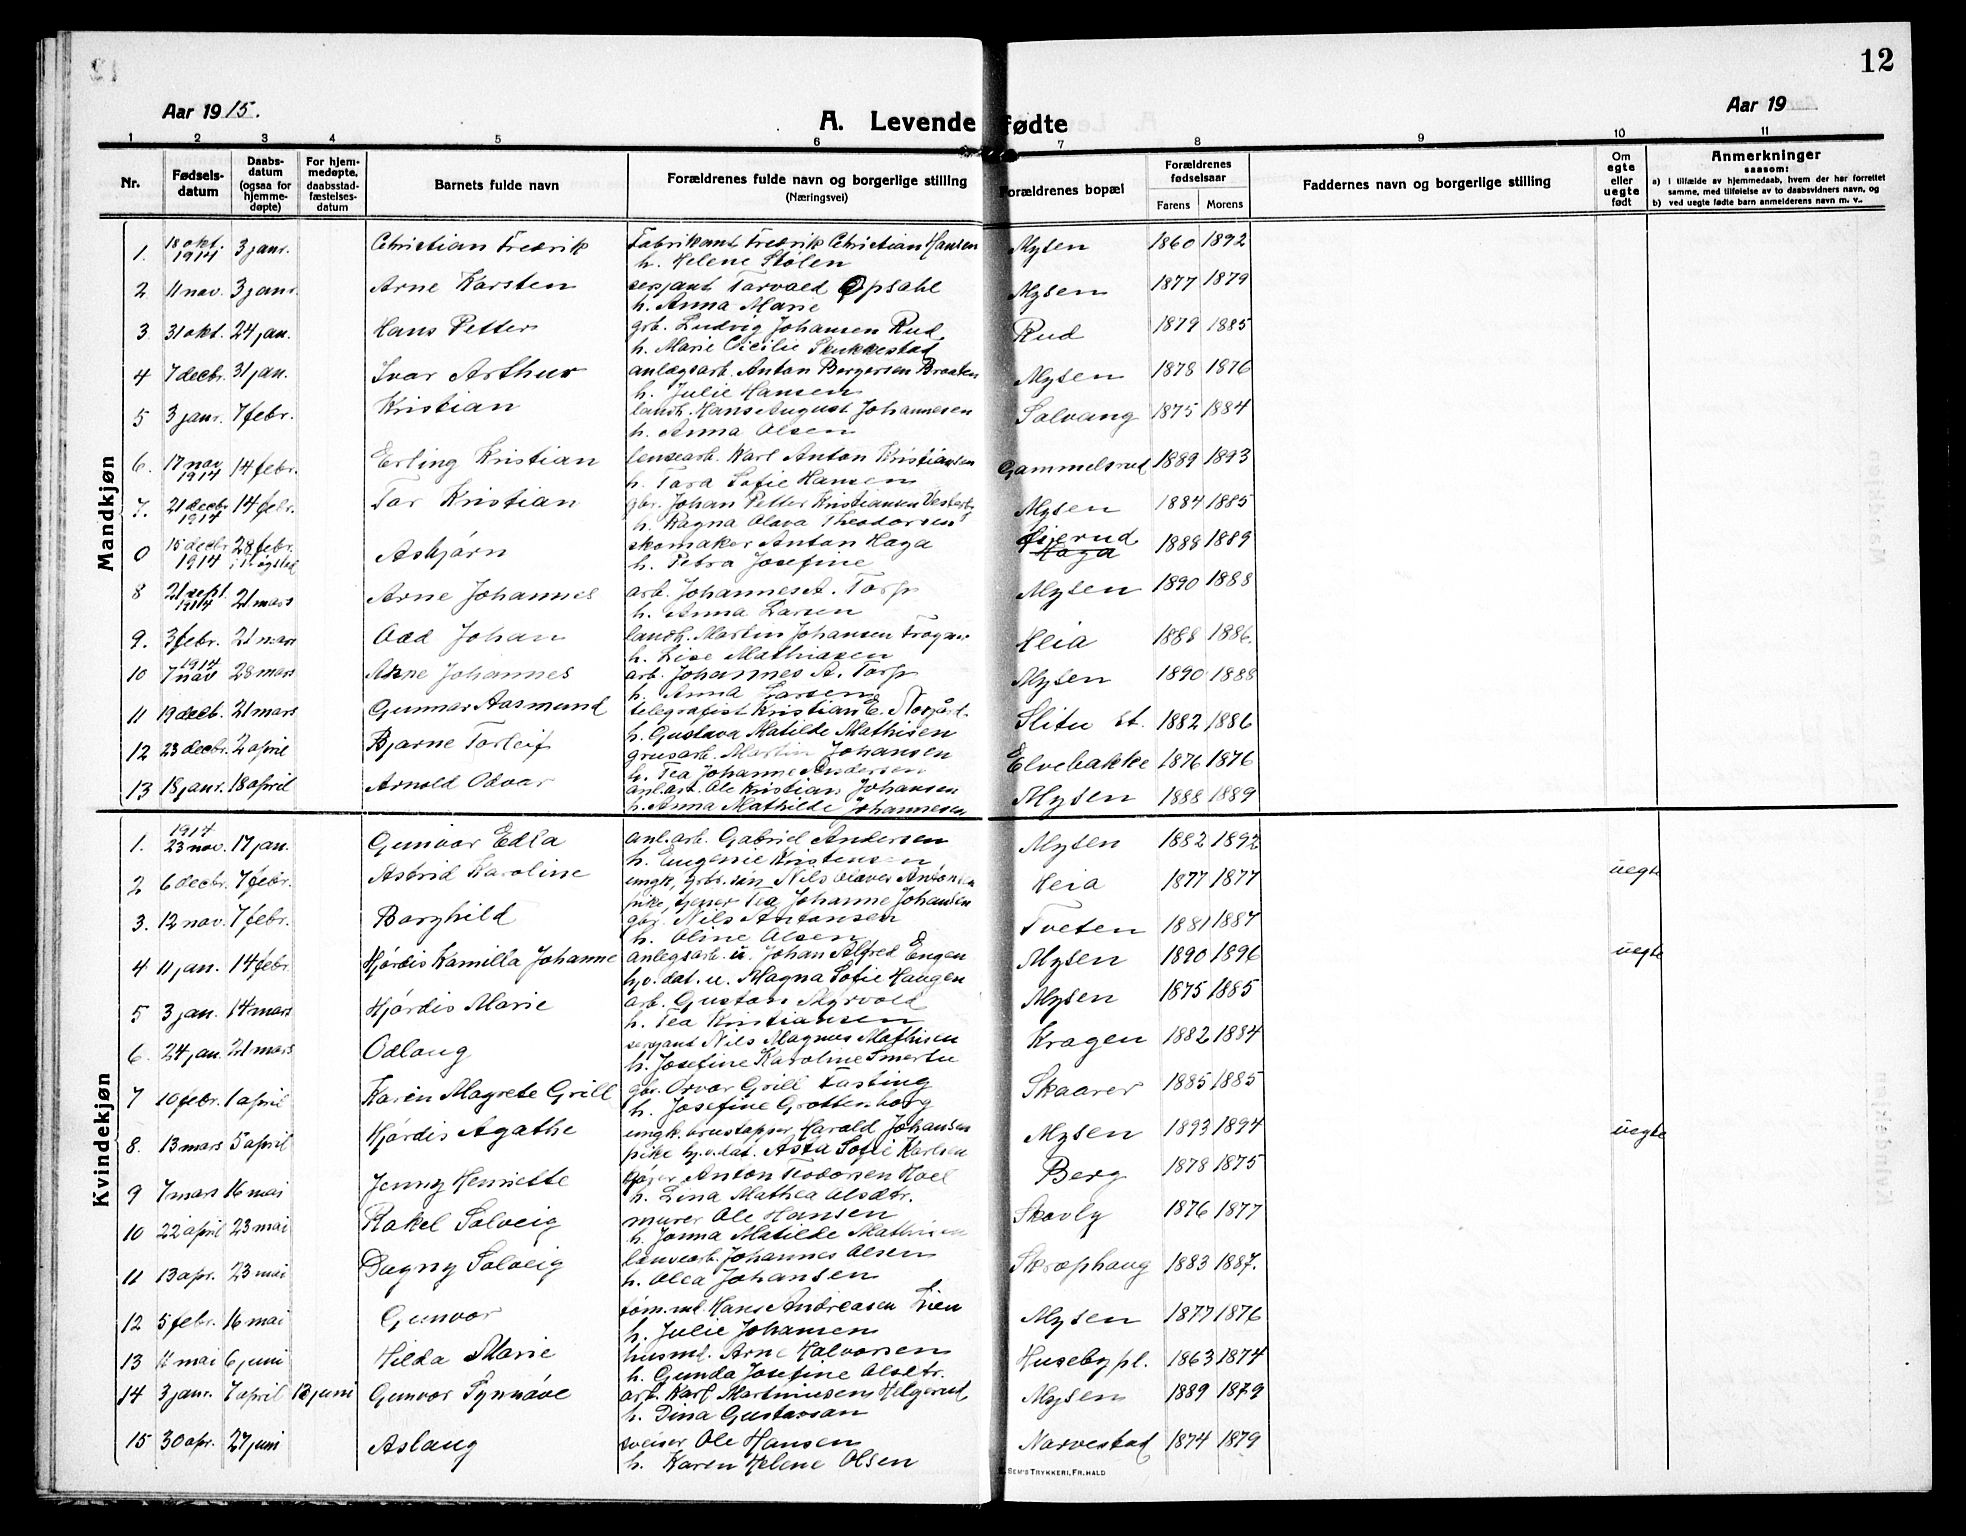 12
Aar 1915.
A. Levende fødte
Aar 19
1 2 3 4 5 6 7 8 9 10 11
Nr.
Fødselsdatum
Daabsdatum (ogsaa for hjemmedøpte)
For hjemmedøpte, daabsstadfæstelsesdatum
Barnets fulde navn
Forældrenes fulde navn og borgerlige stilling (Næringsvei)
Forældrenes bopæl
Forældrenes fødselsaar
Farens Morens
Faddernes navn og borgerlige stilling
Om egte eller uegte født
Anmerkninger
saasom:
a) i tilfælde av hjemmedaab, hvem der har forrettet samme, med tilføielse av to daabsvidners navn, og
b) ved uegte fødte barn anmelderens navn m. v.
Mandkjøn
1. 18 okt. 1914 3 janr. Christian Fredrik Fabrikant Fredrik Christian Hansen Mysen 1860 1892
h. Helene Stølen
2 11 nov. 3 janr. Arne Karsten sersjant Torvald Opsahl Mysen 1877 1879
h. Anna Marie
3 31 okt. 24 jan. Hans Petter grb. Ludvig Johansen Rud Rud 1879 1885
h. Marie Cicilie Skukkestad
4 7 decbr. 31 jan. Ivar Arthur anlægsarb. Anton Borgersen Braaten Mysen 1878 1876
h. Julie Hansen
5 3 janr. 7 febr. Kristian landh. Hans August Johannesen Solvang 1875 1884
h. Anna Olsen
6. 17 nov 1914 14 febr. Erling Kristian lensearb. Karl Anton Kristiansen Gammelsrud 1889 1893
h. Tora Sofie Hansen
7. 21 decbr 1914 14 febr. Tor Kristian gbr. Johan Petter Kristiansen Mysen 1884 1885
h. Ragna Olava Theodorsen
0 15 decbr 1914 28 febr. i Trøgstad Asbjørn skomaker Anton Haga Haga 1888 1889
h. Petra Josefine
8 21 sept. 1914 21 mars Arne Johannes arb. Johannes A. Torp Mysen 1890 1888
h. Anna Larsen
9. 3 febr. 21 mars Odd Johan landh. Martin Johansen Heia 1888 1886.
h. Lise Mathiasen
10 1914 7 nov 28 mars Arne Johannes arb. Johannes A. Torp Mysen 1890 1888
h. Anna Larsen
11 19 decb. 21 mars Gunnar Aasmund telegrafist Kristian E. Norgård. Slitu st. 1882 1886
h. Gustava Matilde Mathisen
12 23 decbr. 2 april Bjarne Torleif grusarb. Martin Johansen Elvebakke 1876 1876
h. Tea Johanne Andersen
13 18 janr. 18 april Arnold Odvar anl.arb. Ole Kristian Johansen Mysen 1888 1889
h. Anna Mathilde Johannesen
Kvindekjøn
1. 1914 23 nov. 17 jan. Gunvor Edla anl.arb. Gabriel Andersen Mysen 1882 1892
h. Eugenie Kristensen
2 6 decbr. 7 febr. Astrid Karoline ungk. grbr. søn Nils Olaves Antonsen Heia 1877 1877 uegte
pike, tjener Tea Johanne Johansen
3. 12 nov. 7 febr. Borghild gbr. Nils Antonsen Tveten 1881 1887
h. Oline Olsen
4 11 jan. 14 febr. Hjørdis Kamilla Johanne anlegsarb. u. Johan Alfred Engen Mysen 1890 1896 uegte
hjv. dat. u. Magna Sofie Haugen
5 3 jan. 14 mars Hjørdis Marie arb. Gustav Myrvold Mysen 1875 1885
h. Tea Kristiansen
6. 24 jan. 21 mars Odlaug sersjant Nils Magnus Mathisen Kragen 1882 1884
h. Josefine Karoline Smertu
7 10 febr. 1 april Karen Magrete Grill gbr. Orvar Grill Fasting Skaarer 1885 1885
h. Josefine Grottenborg
8. 13 mars 5 april Hjørdis Agathe ungk. brustapper Harald Johansen Mysen 1893 1894 uegte
pike hj.v. dat. Asta Sofie Karlsen
9 7 mars 16 mai Jenny Henriette kjører Anton Teodorsen Hoel Berg 1878 1875
h. Lina Mathea Olsdtr.
10 22 april 23 mai Rakel Solveig murer Ole Hansen Skovly 1876 1877
h. Jonna Matilde Mathisen
11 13 apr. 23 mai Dagny Solveig lensearb. Johannes Olsen Skræphaug 1883 1887.
h. Olea Johansen
12 5 febr. 16 mai Gunvor tøm.ml. Hans Andreasen Lien Mysen 1877 1876
h. Julie Johansen
13 11 mai 6 juni Hilda Marie husmd. Arne Halvorsen Huseby pl. 1863 1874
h. Gunda Josefine Olsdtr.
14 3 janr. 7 april 13 juni Gunvor Synnøve arb. Karl Martinusen Helgerud Mysen 1889 1879
h. Dina Gustavsen
15 30 apr. 27 juni Aslaug sveiser Ole Hansen Narvestad 1874 1879
h. Karen Helene Olsen
SEM'S TRYKKERI, FR.HALD